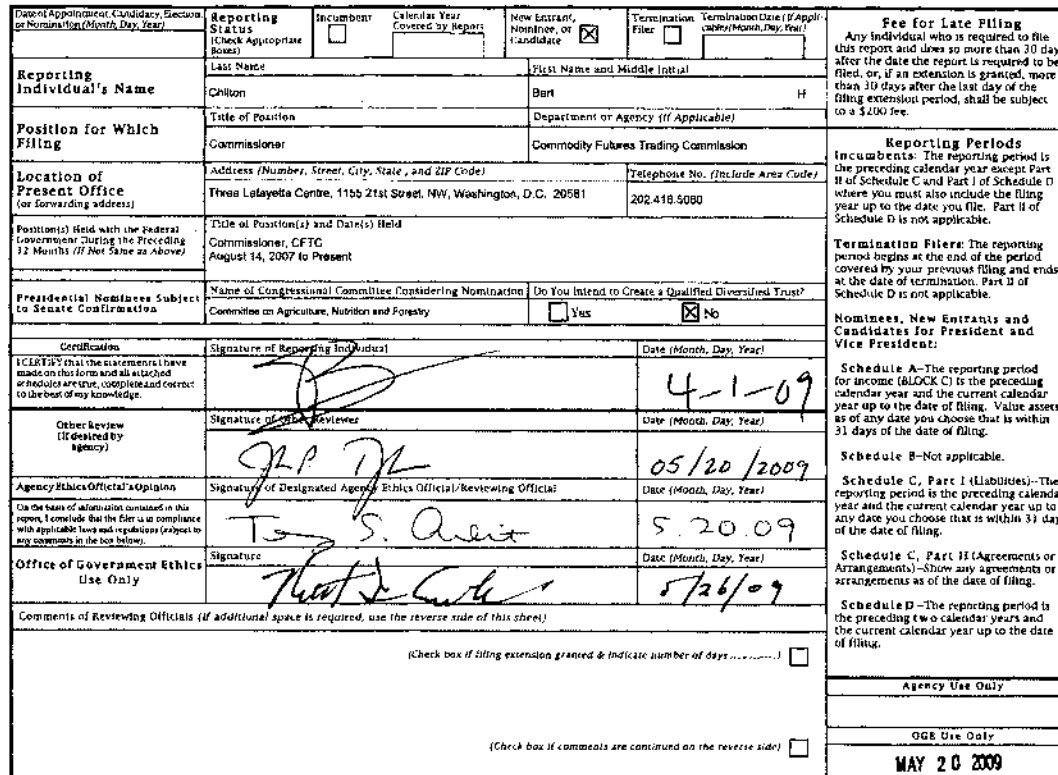 Date of Appointment, Candidacy, Election,
or Nomination (Month, Day, Year)
Reporting
Status
(Check Appropriate
Boxes)
Incumbent
Calendar Year
Covered by Report
New Entrant,
Nominee, or
Candidate
Termination
Filer
Termination Date (If Appli-
cable) (Month, Day, Year)
Reporting
Individual's Name
Last Name
First Name and Middle Initial
Chilton
Bart H
Position for Which
Filing
Title of Position
Department or Agency (If Applicable)
Commissioner
Commodity Futures Trading Commission
Location of
Present Office
(or forwarding address)
Address (Number, Street, City, State, and ZIP Code)
Telephone No. (Include Area Code)
Three Lafayette Centre, 1155 21st Street, NW, Washington, D.C. 20581
202.418.5060
Position(s) Held with the Federal
Government During the Preceding
12 Months (If Not Same as Above)
Title of Position(s) and Date(s) Held
Commissioner, CFTC
August 14, 2007 to Present
Presidential Nominees Subject
to Senate Confirmation
Name of Congressional Committee Considering Nomination
Do You Intend to Create a Qualified Diversified Trust?
Committee on Agriculture, Nutrition and Forestry
Yes
No
Certification
I CERTIFY that the statements I have
made on this form and all attached
schedules are true, complete and correct
to the best of my knowledge.
Signature of Reporting Individual
Date (Month, Day, Year)
4-1-09
Other Review
(If desired by
agency)
Signature of Other Reviewer
Date (Month, Day, Year)
05/20/2009
Agency Ethics Official's Opinion
On the basis of information contained in this
report, I conclude that the filer is in compliance
with applicable laws and regulations (subject to
any comments in the box below).
Signature of Designated Agency Ethics Official/Reviewing Official
Date (Month, Day, Year)
5.20.09
Office of Government Ethics
Use Only
Signature
Date (Month, Day, Year)
5/26/09
Comments of Reviewing Officials (If additional space is required, use the reverse side of this sheet)
(Check box if filing extension granted & indicate number of days ............)
(Check box if comments are continued on the reverse side)
Fee for Late Filing
Any individual who is required to file
this report and does so more than 30 day
after the date the report is required to be
filed, or, if an extension is granted, more
than 30 days after the last day of the
filing extension period, shall be subject
to a $200 fee.
Reporting Periods
Incumbents: The reporting period is
the preceding calendar year except Part
II of Schedule C and Part I of Schedule D
where you must also include the filing
year up to the date you file. Part II of
Schedule D is not applicable.
Termination Filers: The reporting
period begins at the end of the period
covered by your previous filing and ends
at the date of termination. Part II of
Schedule D is not applicable.
Nominees, New Entrants and
Candidates for President and
Vice President:
Schedule A–The reporting period
for income (BLOCK C) is the preceding
calendar year and the current calendar
year up to the date of filing. Value assets
as of any date you choose that is within
31 days of the date of filing.
Schedule B–Not applicable.
Schedule C, Part I (Liabilities)--The
reporting period is the preceding calenda
year and the current calendar year up to
any date you choose that is within 31 day
of the date of filing.
Schedule C, Part II (Agreements or
Arrangements)–Show any agreements or
arrangements as of the date of filing.
Schedule D–The reporting period is
the preceding two calendar years and
the current calendar year up to the date
of filing.
Agency Use Only
OGE Use Only
MAY 20 2009